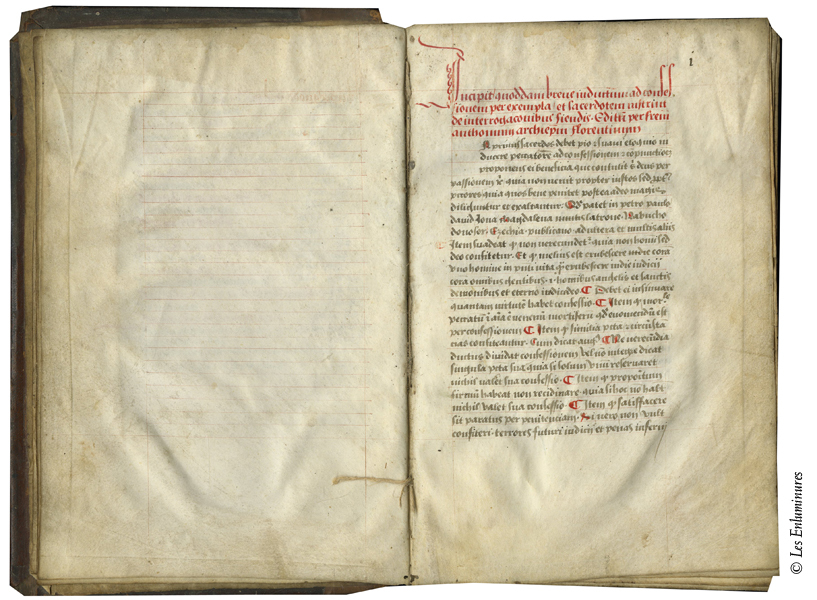 1
Incipit quoddam breve
sionem per exempla et sacerdotem instruit
de interrogacionibus fiendis. Editum per fratrem
anthonium archiepm florentinum
primus sacerdos debet pio et suavi eloquio in
ducere peccatorem ad confessionem
proponens ei beneficia que contulit deus per
passionem quia non venit propter iustos sed
quia quos bene penitet postea adeo magis
diliguntur et exaltantur. patet in petro paulo
david Iona magdalena latrone. Nabucho
donosor. Ezechia. publicano adultera et multis aliis
Item suadeat non verecundetur quia non homini sed
deo confitetur. Et melius est erubescere
uno homine in vita erubescere in die iudicii
omnibus gentibus. hominibus angelis et sanctis
demonibus et eterno iudicio ¶ Debet ei insinuare
quantam virtutem habet confessio. ¶ Item
peccatum venenum evomendum est
per confessionem ¶ Item
confiteantur. Cum dicat ¶ Ne verecundia
ductus dividat confessionem vel non integre dicat
singula quia si solum unum reservaret
nichil valet sua confessio. ¶ Item
habeat non recidivare quia si hoc non habet
nichil valet sua confessio. ¶ Item satisfacere
sit paratus per penitenciam. Si vero non vult
confiteri. terrores futuri iudicii et penas inferni
© Les Enluminures